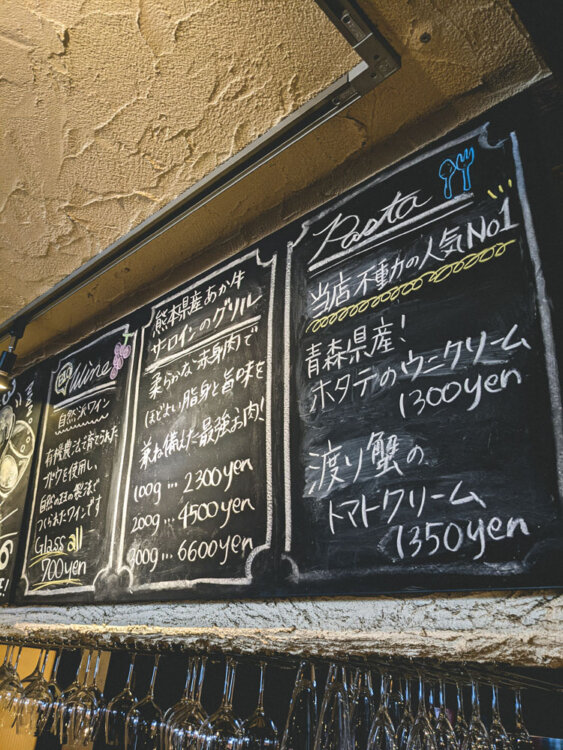 Wine
自然派ワイン
有機農法で育てられた
ブドウを使用し、
自然のままの製法で
つくられたワインです
Glass all
700yen
熊本県産あか牛
サーロインのグリル
柔らかな赤身肉で
ほどよい脂身と旨味を
兼ね備えた最強お肉!
100g … 2300yen
200g … 4500yen
300g … 6600yen
Pasta
当店不動の人気No1
青森県産!
ホタテのウニクリーム
1300yen
渡り蟹の
トマトクリーム
1350yen